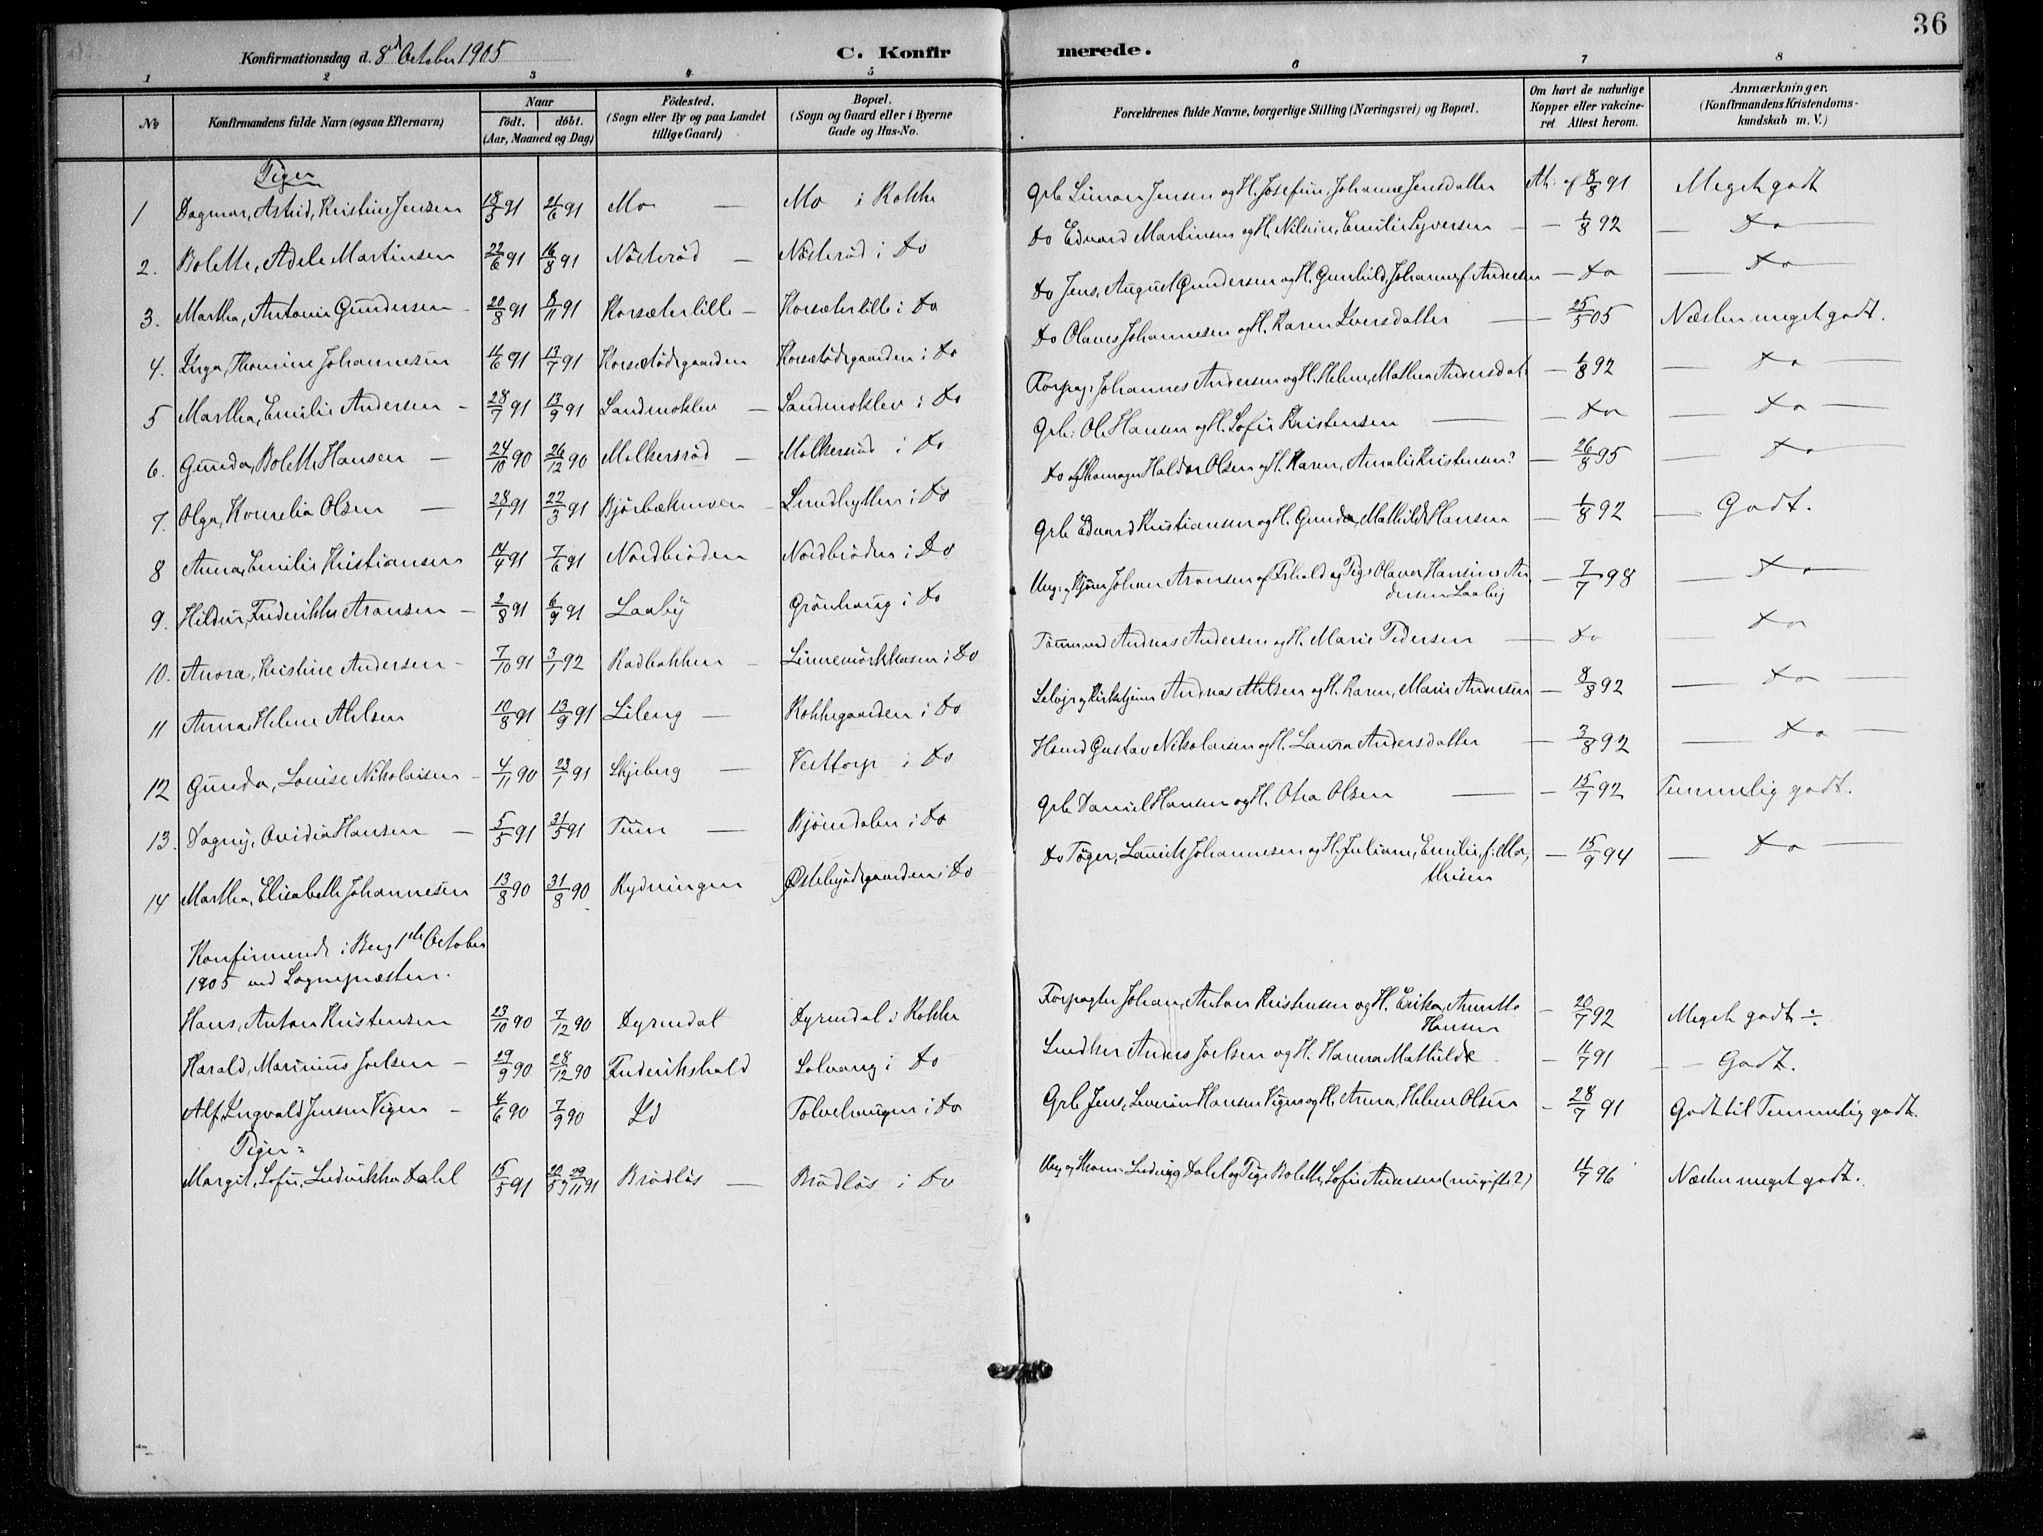 36
Konfirmationsdag d. 8de October 1905 C. Konfirmerede.
1 2 3 4 5 6 7 8
No Konfirmandens fulde Navn (ogsaa Efternavn) Naar födt. döbt. (Aar, Maaned og Dag) Födested. (Sogn eller By og paa Landet tillige Gaard) Bopæl. (Sogn og Gaard eller i Byerne Gade og Hus-No. Forældrenes fulde Navne, borgerlige Stilling (Næringsvei) og Bopæl. Om havt de naturlige Kopper eller vakcineret Attest herom. Anmærkninger. (Konfirmandens Kristendomskundskab m. V.)
Piger
1 Dagmar, Astrid, Kristine Jensen 18/3 91 21/6 91 Mo — Mo i Rokke Grb Simon Jensen og H. Josefine, Johanne Jensdatter At. af 8/8 91 Meget godt
2. Bolette, Adele Martinsen 22/6 91 16/8 91 Nösteröd — Nösteröd i do do Edvard Martinsen og H. Nilsine, Emilie Syversen — 1/8 92 — do —
3. Martha, Antonie Gundersen — 20/8 91 8/11 91 Korsæterlille — Korsæterlille i do do Jens, August Gundersen og H. Gunhild, Johanne f. Andersen — do — do —
4. Inga, Thomine Johannesen 11/6 91 13/7 91 Korsetödegaarden Korsetödegaarden i do do Olaves Johannesen og H. Karen Iversdatter — 25/5 05 Næsten meget godt.
5 Martha, Emilie Andersen — 28/7 91 13/9 91 Sandmoklev — Sandmoklev i do Forpag: Johannes Andersen og H. Helene, Mathea Andersdat — 1/8 92 — do —
6. Gunda, Bolette Hansen — 24/10 90 26/12 90 Molkersröd — Molkersröd i do Grb: Ole Hansen og H. Sofie Kristensen — do — do —
7. Olga, Kornelia Olsen — 28/1 91 22/3 91 Björbækmoen — Lundhytten i do do og Skomager Haldor Olsen og H. Karen, Amalie Kristensen? — 26/8 95 — do
8 Anna, Emilie Kristiansen 14/4 91 7/6 91 Nordbröden Nordbröden i do Grb Edvard Kristiansen og H. Gunda, Mathilde Hansen — 1/8 92 — Godt.
9. Hildur, Frederikke Aronsen — 2/8 91 6/9 91 Laaby Grönhaug i do Ung: og Johan Aronsen af Frhald og Pige Olava Hansine Andersen Laaby — 7/7 98 — do —
10. Anora, Kristine Andersen — 7/10 91 3/1 92 Radbakken — i do Tömmerm Andreas Andersen og H. Marie Pedersen — do do
11 Anna, Helene Ahlsen 10/8 91 13/9 91 Lileng — Rokkegaarden i do Selvejr og Kirketjener Andreas Ahlsen og H. Karen, Marie Andersen — 8/8 92 — do —
12 Gunda, Louise Nikolaisen — 4/11 90 23/1 91 Skjeberg — Vesttorp i do Husmd Gustav Nikolaisen og H. Laura Andersdatter — 2/8 92 — do —
13. Dagny, Ovidia Hansen — 5/5 91 31/5 91 Tune — Björndalen i do Grb Daniel Hansen og H. Olea Olsen — 15/7 92 Temmelig godt.
14 Martha, Elisabeth Johannesen 13/8 90 31/8 90 Rydningen Østebyödegaarden i do do Töger, Laurits Johannesen og H. Juliane, Emilie, f. Mathisen — 15/9 94 — do —
Konfirmerede i Berg 1ste October
1905 ved Sognepræsten.
Hans, Anton Kristensen 23/10 90 7/12 90 Dyrendal Dyrendal i Rokke Forpagter Johan, Anton Kristensen og H. Erika, Annette Hansen — 20/7 92 Meget godt ÷
Harald, Marinius Joelsen — 29/9 90 28/12 90 Frederikshald Solvang i do Snedker Anders Joelsen og H. Hanna Mathilde — 11/7 91 — Godt.
Alf, Ingvald Jensen Vigen — 4/6 90 7/9 90 Id Tolvehaugen i do Grb Jens, Severin Hansen Vigen og H. Anna, Helene Olsen — 28/7 91 Godt til Temmelig godt.
Piger:
Margit, Sofie, Ludvikka Dahl 15/5 91 29/11 91 Brödlös — Brödlös i do Ung og Skom: Ludvig Dahl og Pige Bolette, Sofie Andersen (nu gifte?) 11/7 96 Næsten meget godt.